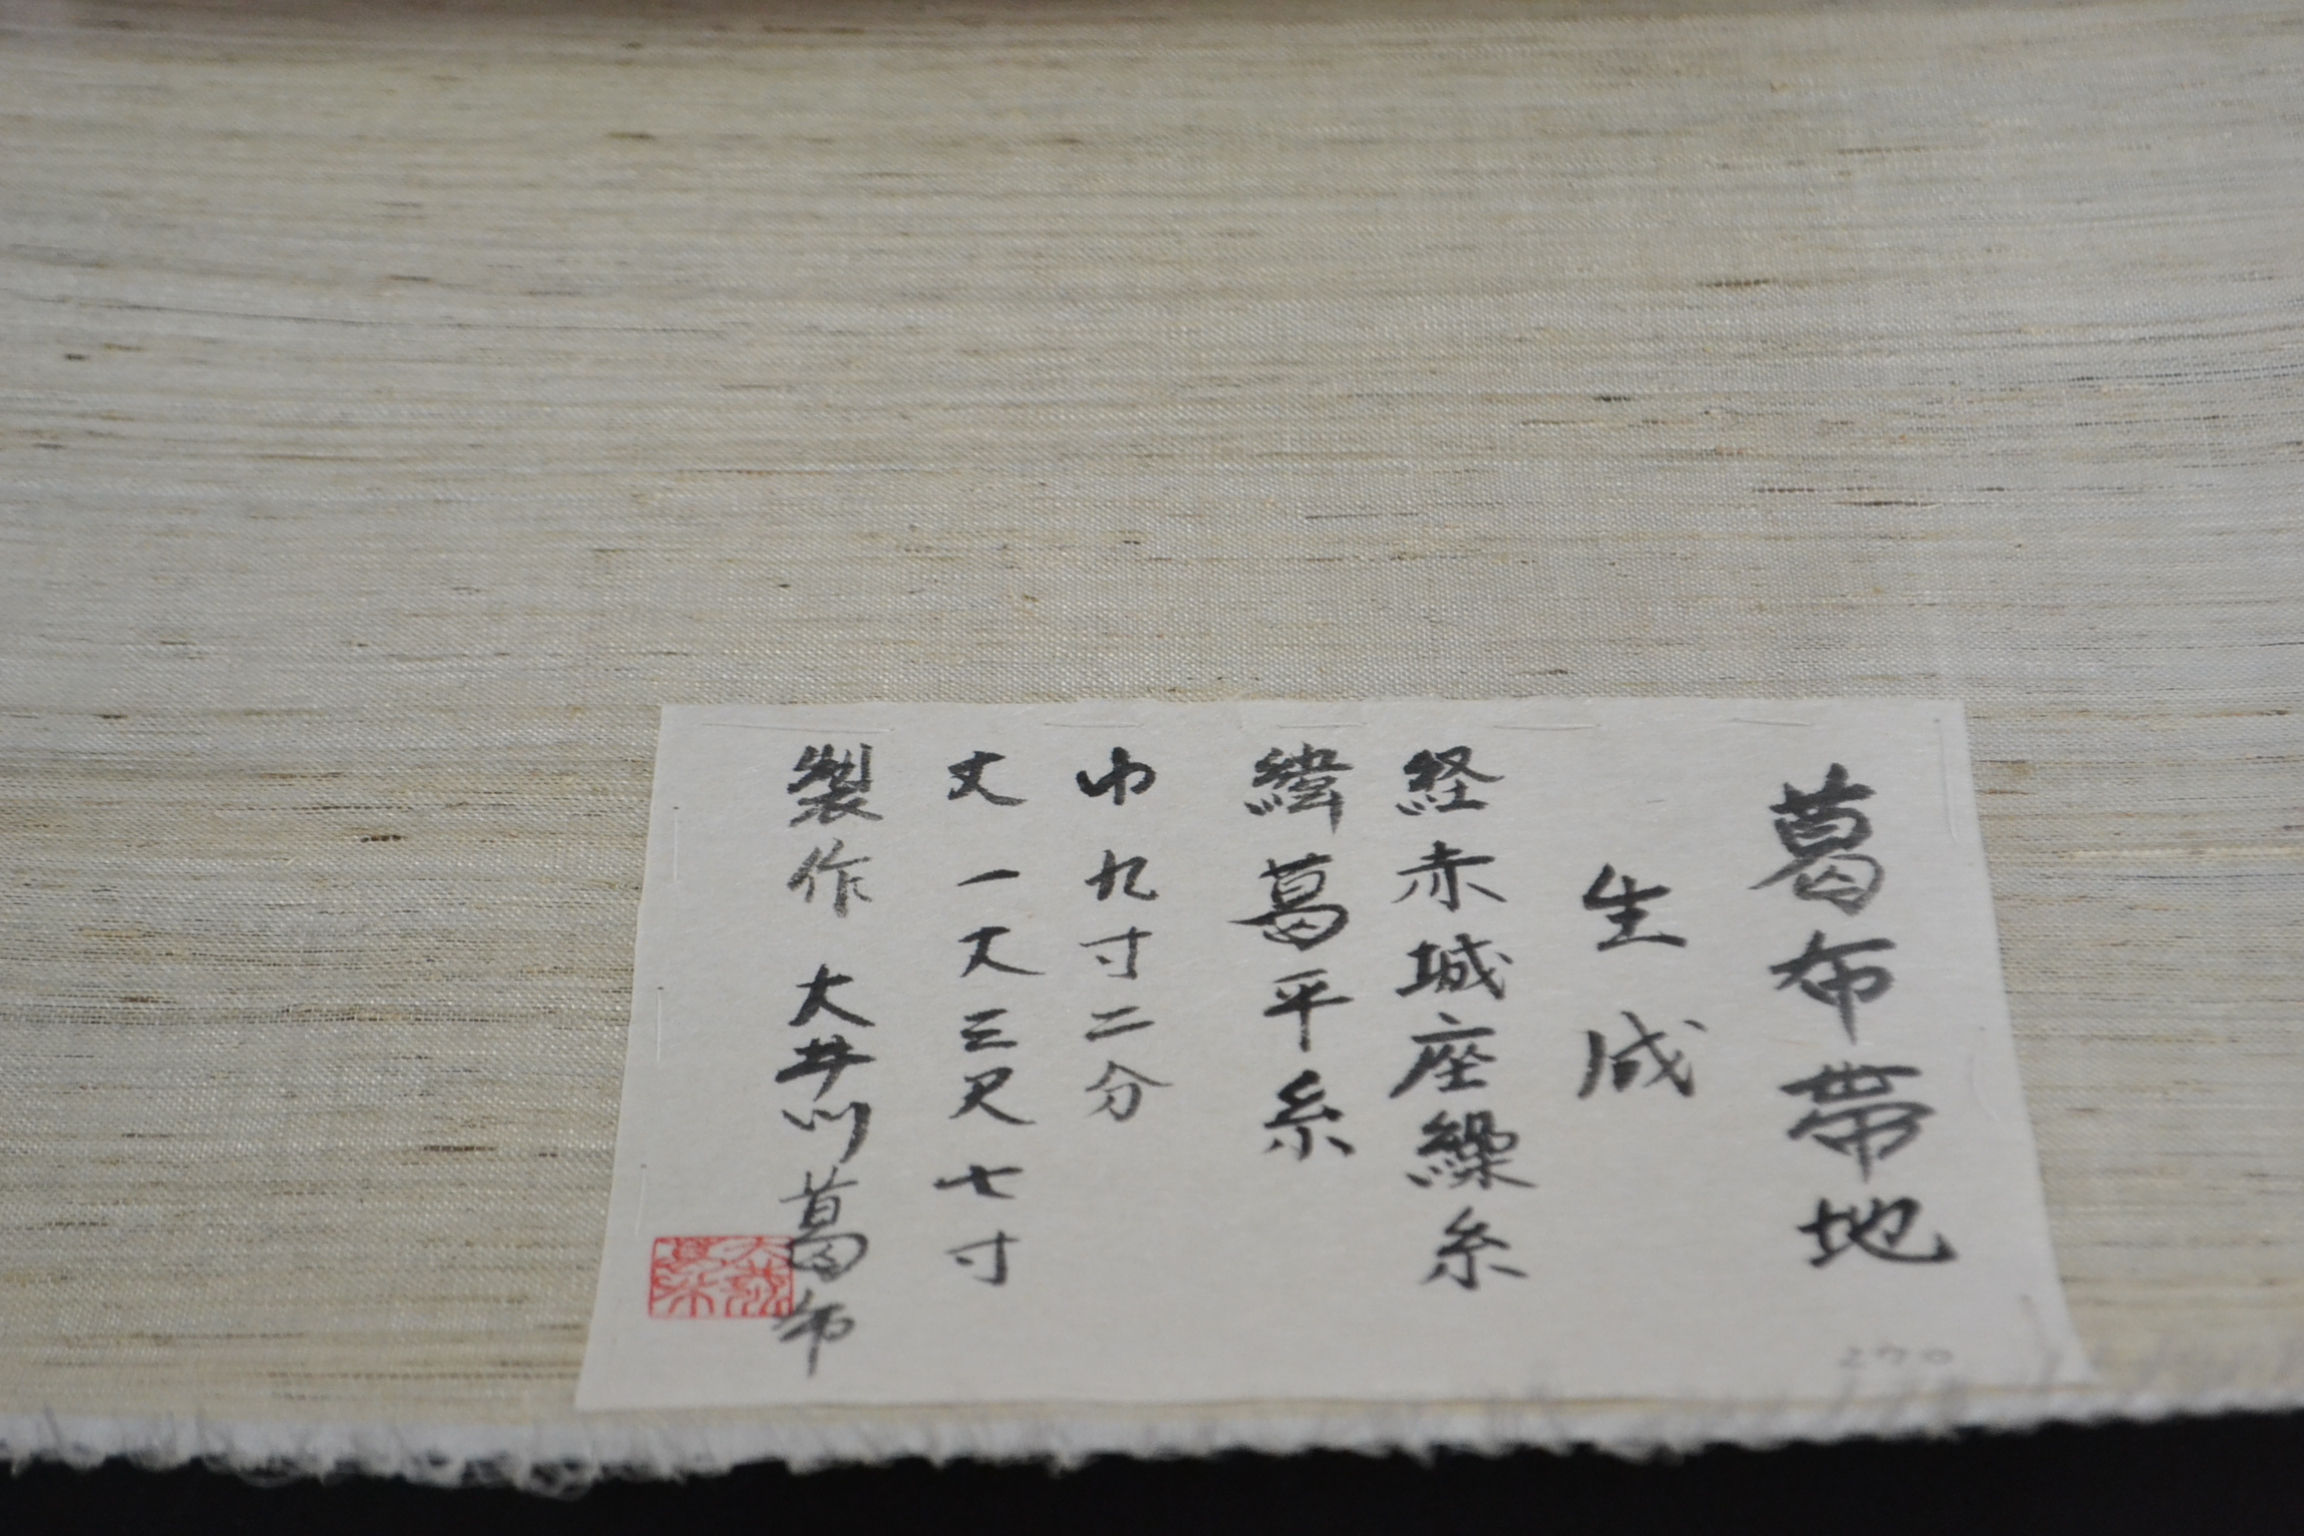 葛布帯地
生成
経赤城座繰糸
緯葛平糸
巾九寸二分
丈一丈三尺七寸
製作 大井川葛布
270